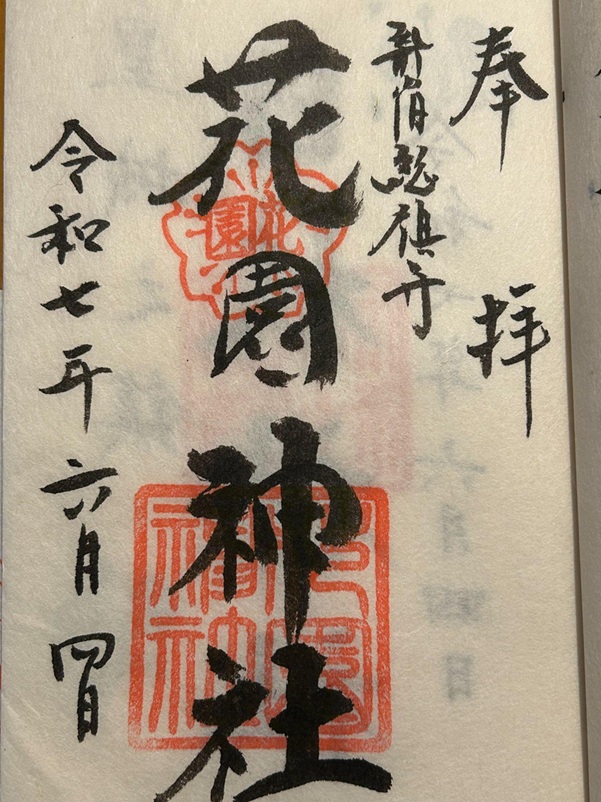 奉拝
新宿総鎮守
花園神社
令和七年六月四日
花園